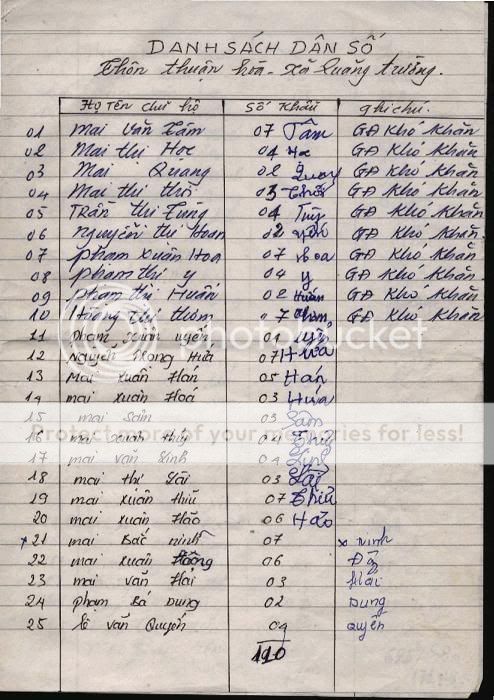 DANH SÁCH DÂN SỐ
Thôn thuận hóa - xã Quảng trường.
Họ Tên chủ hộ Số khẩu ghi chú.
01 Mai Văn Tám 07 Tâm GĐ Khó Khăn
02 Mai thi Học 04 Học GĐ Khó Khăn
03 Mai Quang 02 Quang GĐ Khó Khăn
04 Mai thi thô 03 GĐ Khó Khăn
05 Trần thi Tùng 04 GĐ Khó Khăn
06 Nguyễn thi Hoan 02 GĐ Khó Khăn.
07 phạm Xuân Hoa 07 Hoa GĐ Khó Khăn.
08 phạm thi y 04 y GĐ Khó Khăn.
09 phạm thi Huấn 02 Huấn GĐ Khó Khăn.
10 Hoàng thi thơm 07 GĐ Khó Khăn
11 phạm xuân uyển 04
12 Nguyễn Trọng Hứa 07 Hứa
13 Mai Xuân Hán 05 Hán
14 mai xuân Hoá 03
15 mai Sâm 03 Sâm
16 mai xuân thuỷ 04
17 mai văn Sinh 04
18 mai thị Lái 03 Lái
19 mai xuân thiu 07 Thiu
20 mai xuân Hảo 06 Hảo
x 21 mai Bắc ninh 07 x ninh
22 mai xuân 06
23 mai văn Hải 03 Hải
24 phạm Bá Dung 02 Dung
25 lê văn Quyền 04 quyền
110
photobucket
Protect more of your memories for less!